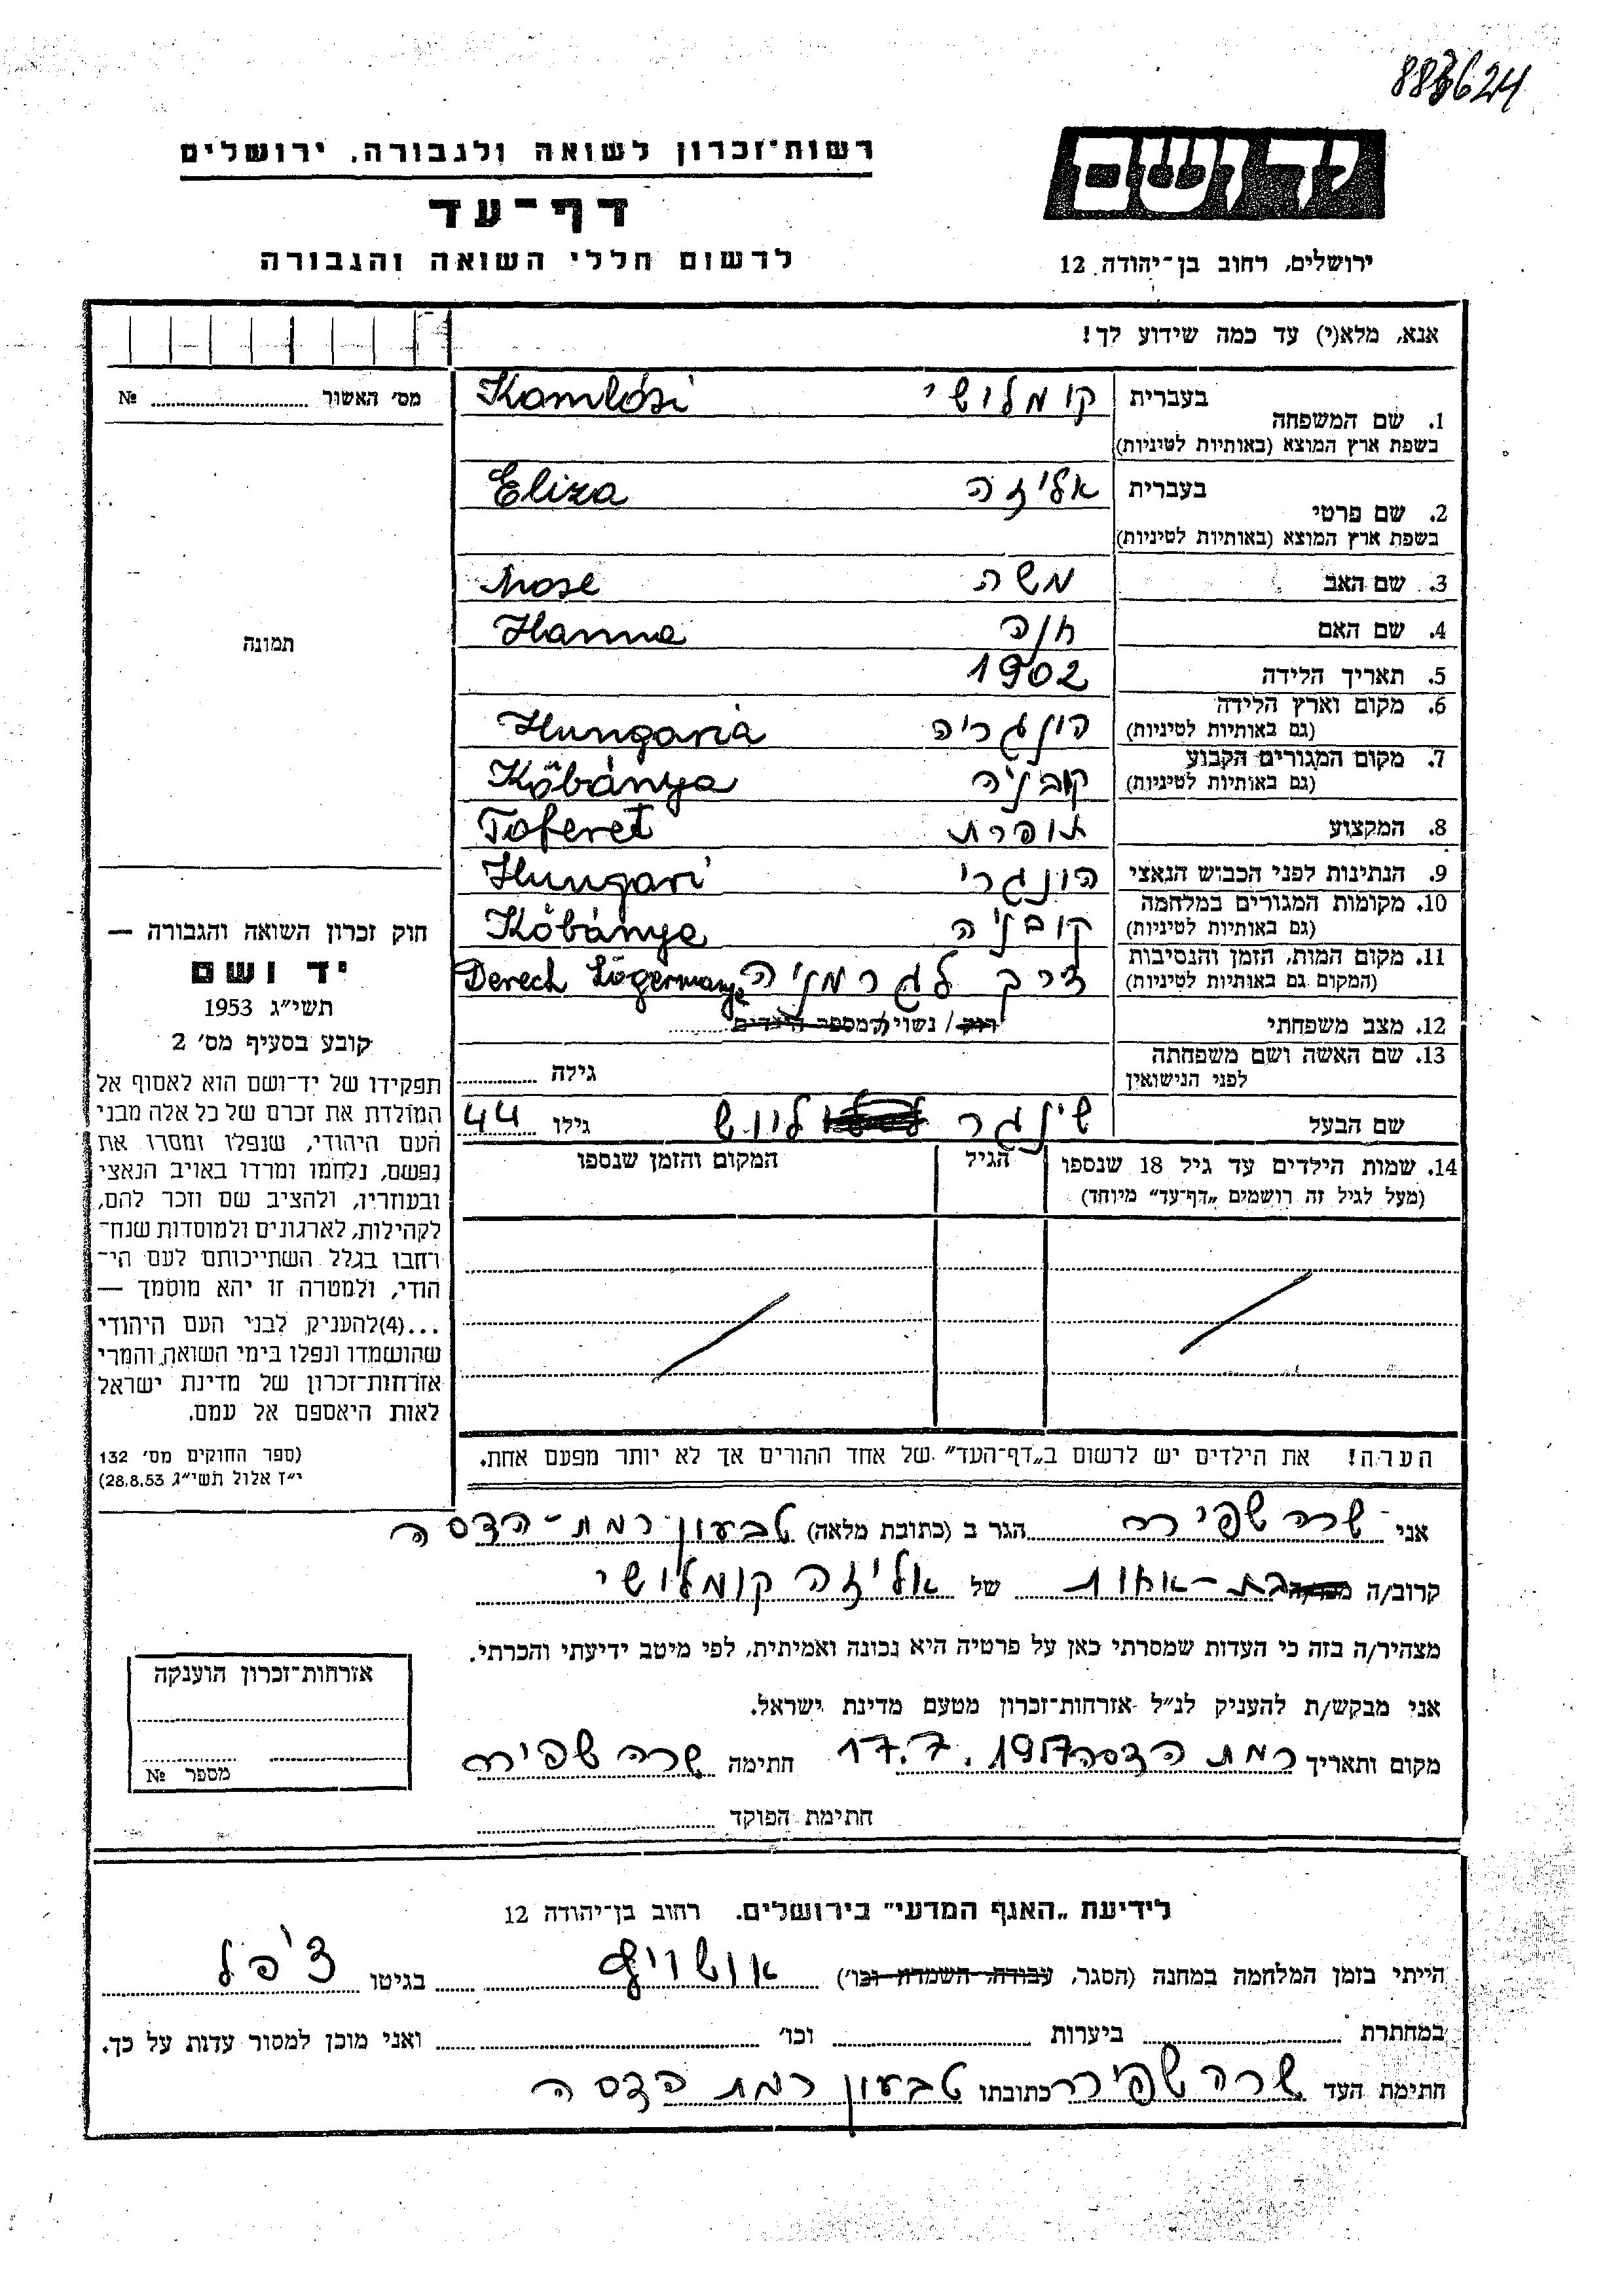 883624
רשות־זכרון לשואה ולגבורה, ירושלים
דף־עד
לרשום חללי השואה והגבורה
יד ושם
ירושלים, רחוב בן־יהודה 12
אנא, מלא(י) עד כמה שידוע לך!
מס׳ האשור № ..........
תמונה
1. שם המשפחה בעברית קומלושי Komlósi
בשפת ארץ המוצא (באותיות לטיניות)
2. שם פרטי בעברית אליזה Eliza
בשפת ארץ המוצא (באותיות לטיניות)
3. שם האב משה Mose
4. שם האם חנה Hanna
5. תאריך הלידה 1902
6. מקום וארץ הלידה הונגריה Hungaria
(גם באותיות לטיניות)
7. מקום המגורים הקבוע קובניה Kőbánya
(גם באותיות לטיניות)
8. המקצוע תופרת Toferet
9. הנתינות לפני הכבוש הנאצי הונגרי Hungari
10. מקומות המגורים במלחמה קובניה Kőbánya
(גם באותיות לטיניות)
11. מקום המות, הזמן והנסיבות דרך לגרמניה Derech Lögermanye
(המקום גם באותיות לטיניות)
12. מצב משפחתי רווק / נשוי / מספר הילדים ........
13. שם האשה ושם משפחתה
לפני הנישואין גילה ..........
שם הבעל שינגר ליוש גילו 44
14. שמות הילדים עד גיל 18 שנספו הגיל המקום והזמן שנספו
(מעל לגיל זה רושמים „דף־עד״ מיוחד)
הערה! את הילדים יש לרשום ב„דף־העד״ של אחד ההורים אך לא יותר מפעם אחת.
חוק זכרון השואה והגבורה —
יד ושם
תשי״ג 1953
קובע בסעיף מס׳ 2
תפקידו של יד־ושם הוא לאסוף אל
המולדת את זכרם של כל אלה מבני
העם היהודי, שנפלו ומסרו את
נפשם, נלחמו ומרדו באויב הנאצי
ובעוזריו, ולהציב שם וזכר להם,
לקהילות, לארגונים ולמוסדות שנח־
רבו בגלל השתייכותם לעם הי־
הודי, ולמטרה זו יהא מוסמך —
...(4)להעניק לבני העם היהודי
שהושמדו ונפלו בימי השואה והמרי
אזרחות־זכרון של מדינת ישראל
לאות היאספם אל עמם.
(ספר החוקים מס׳ 132
י״ז אלול תשי״ג 28.8.53)
אני שרה שפירא הגר ב (כתובת מלאה) טבעון רמת-הדסה
קרוב/ה בת-אחות של אליזה קומלושי
מצהיר/ה בזה כי העדות שמסרתי כאן על פרטיה היא נכונה ואמיתית, לפי מיטב ידיעתי והכרתי.
אני מבקש/ת להעניק לנ״ל אזרחות־זכרון מטעם מדינת ישראל.
מקום ותאריך רמת הדסה 17.7.1957 חתימה שרה שפירא
חתימת הפוקד
אזרחות־זכרון הוענקה
מספר №
לידיעת „האגף המדעי״ בירושלים. רחוב בן־יהודה 12
הייתי בזמן המלחמה במחנה (הסגר, עבודה, השמדה וכו׳) אושויץ בגיטו צ׳פל
במחתרת ביערות וכו׳ ואני מוכן למסור עדות על כך.
חתימת העד שרה שפירא כתובתו טבעון רמת הדסה